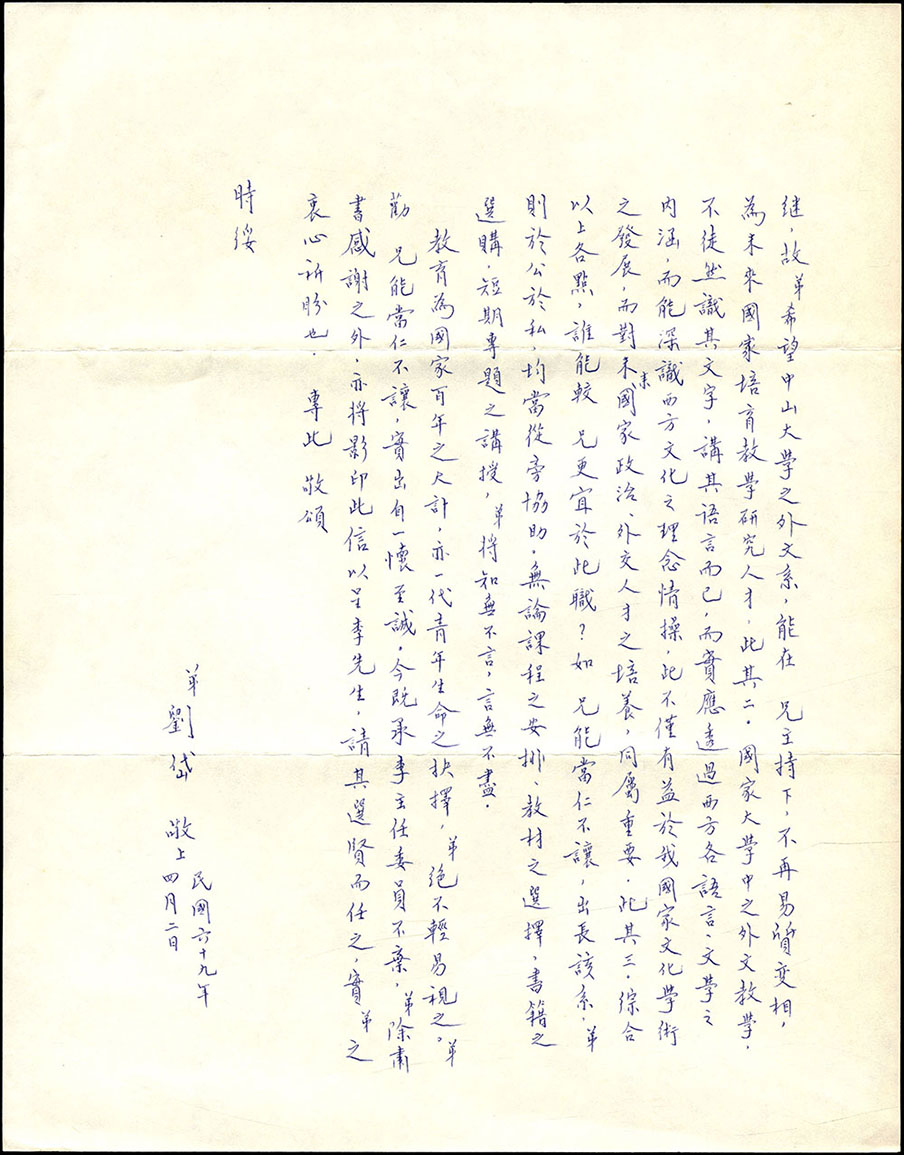 继，故弟希望中山大學之外文系，能在　兄主持下，不再易質变相，
為未來國家培育教學研究人才．此其二。國家大學中之外文教學．
不徒然識其文字，講其語言而已，而實應透過西方各語言、文學之
内涵，而能深識西方文化之理念情操，此不僅有益於我國家文化學術
之發展，而對未來國家政治、外交人才之培養，同屬重要．此其三．綜合
以上各點，誰能較　兄更宜於此職？如　兄能當仁不讓，出長該系，弟
則於公於私，均當從旁協助．無論課程之安排、教材之選擇，書籍之
選購．短期專題之講授，弟將知無不言，言無不盡．
教育為國家百年之大計，亦一代青年生命之抉擇，弟絕不輕易視之。弟
勸　兄能當仁不讓，實出自一懷至誠．今既承李主任委員不棄，弟除肅
書感謝之外．亦將影印此信以呈李先生，請其選賢而任之，實弟之
衷心所盼也．　專此　敬頌
時綏
弟劉岱　敬上
民國六十九年
四月二日